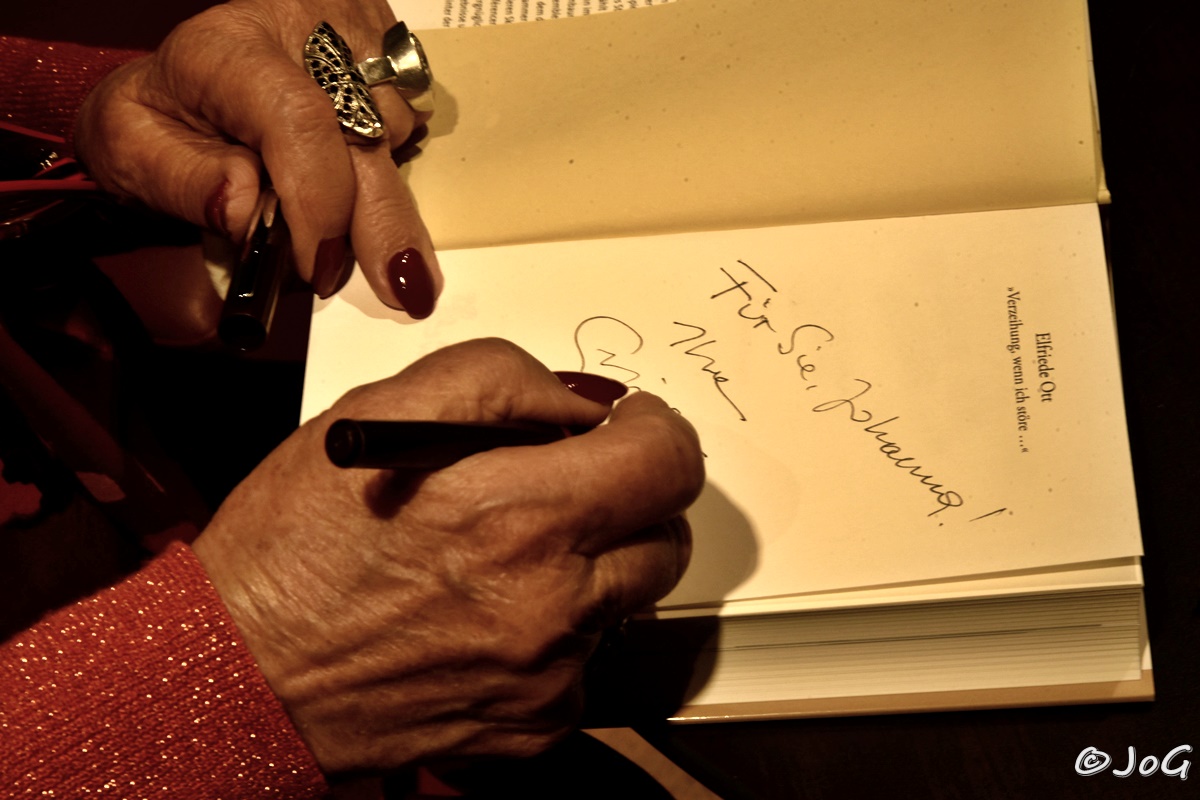 Elfriede Ott
»Verzeihung, wenn ich störe …«
Für Sie, Johanna!
Ihre
© JoG